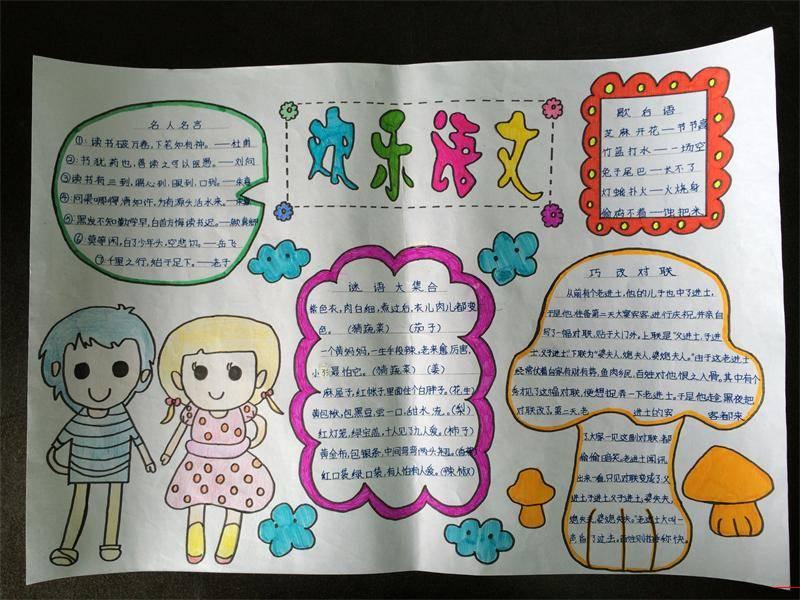 欢乐语文
名人名言
①：读书破万卷，下笔如有神。——杜甫
②：书犹药也，善读之可以医愚。——刘向
③读书有三到，谓心到，眼到，口到。——朱熹
④：问渠哪得清如许，为有源头活水来。——朱熹
⑤：黑发不知勤学早，白首方悔读书迟。——颜真卿
⑥：莫等闲，白了少年头，空悲切。——岳飞
⑦千里之行，始于足下。——老子
歇后语
芝麻开花——节节高
竹篮打水——一场空
兔子尾巴——长不了
灯蛾扑火——火烧身
偷鸡不着——蚀把米
谜语大集合
紫色衣，肉白细，煮过后，衣儿肉儿都变
色。（猜蔬菜）（茄子）
一个黄妈妈，一生手段辣，老来愈厉害，
小孩最怕它。（猜蔬菜）（姜）
麻屋子，红帐子，里面住个白胖子。（花生）
黄包袱，包黑豆，尝一口，甜水流。（梨）
红灯笼，绿宝盖，十人见了九人爱。（柿子）
黄金布，包银条，中间弯弯两头翘。（香蕉）
红口袋，绿口袋，有人怕有人爱。（辣椒）
巧改对联
从前有个老进士，他的儿子也中了进士，
于是他准备第二天大宴宾客，进行庆祝，并亲自
写了一幅对联，贴于大门外。上联是“父进士，子进
士，父子进士”下联为“婆夫人，媳夫人，婆媳夫人。”由于这老进士
经常仗着自家有财有势，鱼肉乡民，百姓对他恨之入骨。其中有个
秀才见了这幅对联，便想捉弄一下老进士。于是他趁黑夜把
对联改了。第二天，老 进士的宾 客都来
了，大家一见这幅对联，都
偷偷暗笑。老进士闻讯
出来一看，只见对联变成了“父
进土，子进土，父子进土，婆失夫，
媳失夫，婆媳失夫。”老进士大叫一
声，昏了过去，百姓则拍手称快。